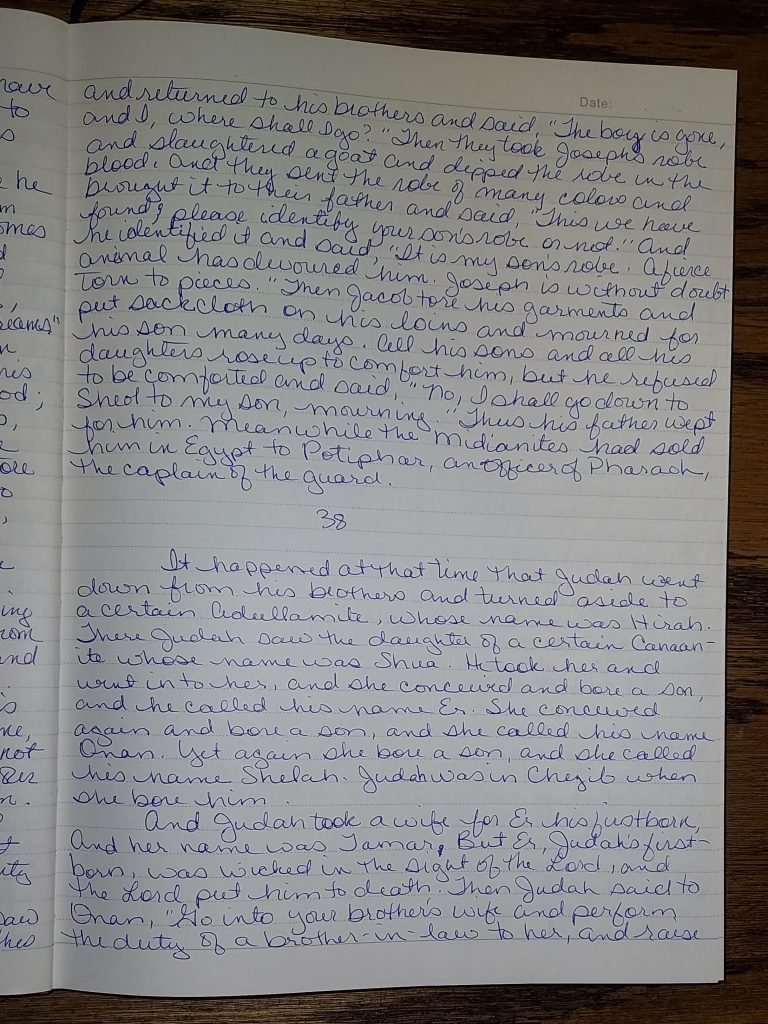 Date:
and returned to his brothers and said, "The boy is gone,
and I, where shall I go?" Then they took Joseph's robe
and slaughtered a goat and dipped the robe in the
blood. And they sent the robe of many colors and
brought it to their father and said, "This we have
found; please identify your son's robe or not." And
he identified it and said, "It is my son's robe. A fierce
animal has devoured him. Joseph is without doubt
torn to pieces." Then Jacob tore his garments and
put sackcloth on his loins and mourned for
his son many days. All his sons and all his
daughters rose up to comfort him, but he refused
to be comforted and said, "No, I shall go down to
Sheol to my son, mourning." Thus his father wept
for him. Meanwhile the Midianites had sold
him in Egypt to Potiphar, an officer of Pharaoh,
the captain of the guard.
38
It happened at that time that Judah went
down from his brothers and turned aside to
a certain Adullamite, whose name was Hirah.
There Judah saw the daughter of a certain Canaan-
ite whose name was Shua. He took her and
went in to her, and she conceived and bore a son,
and he called his name Er. She conceived
again and bore a son, and she called his name
Onan. Yet again she bore a son, and she called
his name Shelah. Judah was in Chezib when
she bore him.
And Judah took a wife for Er his firstborn,
And her name was Tamar, But Er, Judah's first-
born, was wicked in the sight of the Lord, and
the Lord put him to death. Then Judah said to
Onan, "Go into your brother's wife and perform
the duty of a brother-in-law to her, and raise